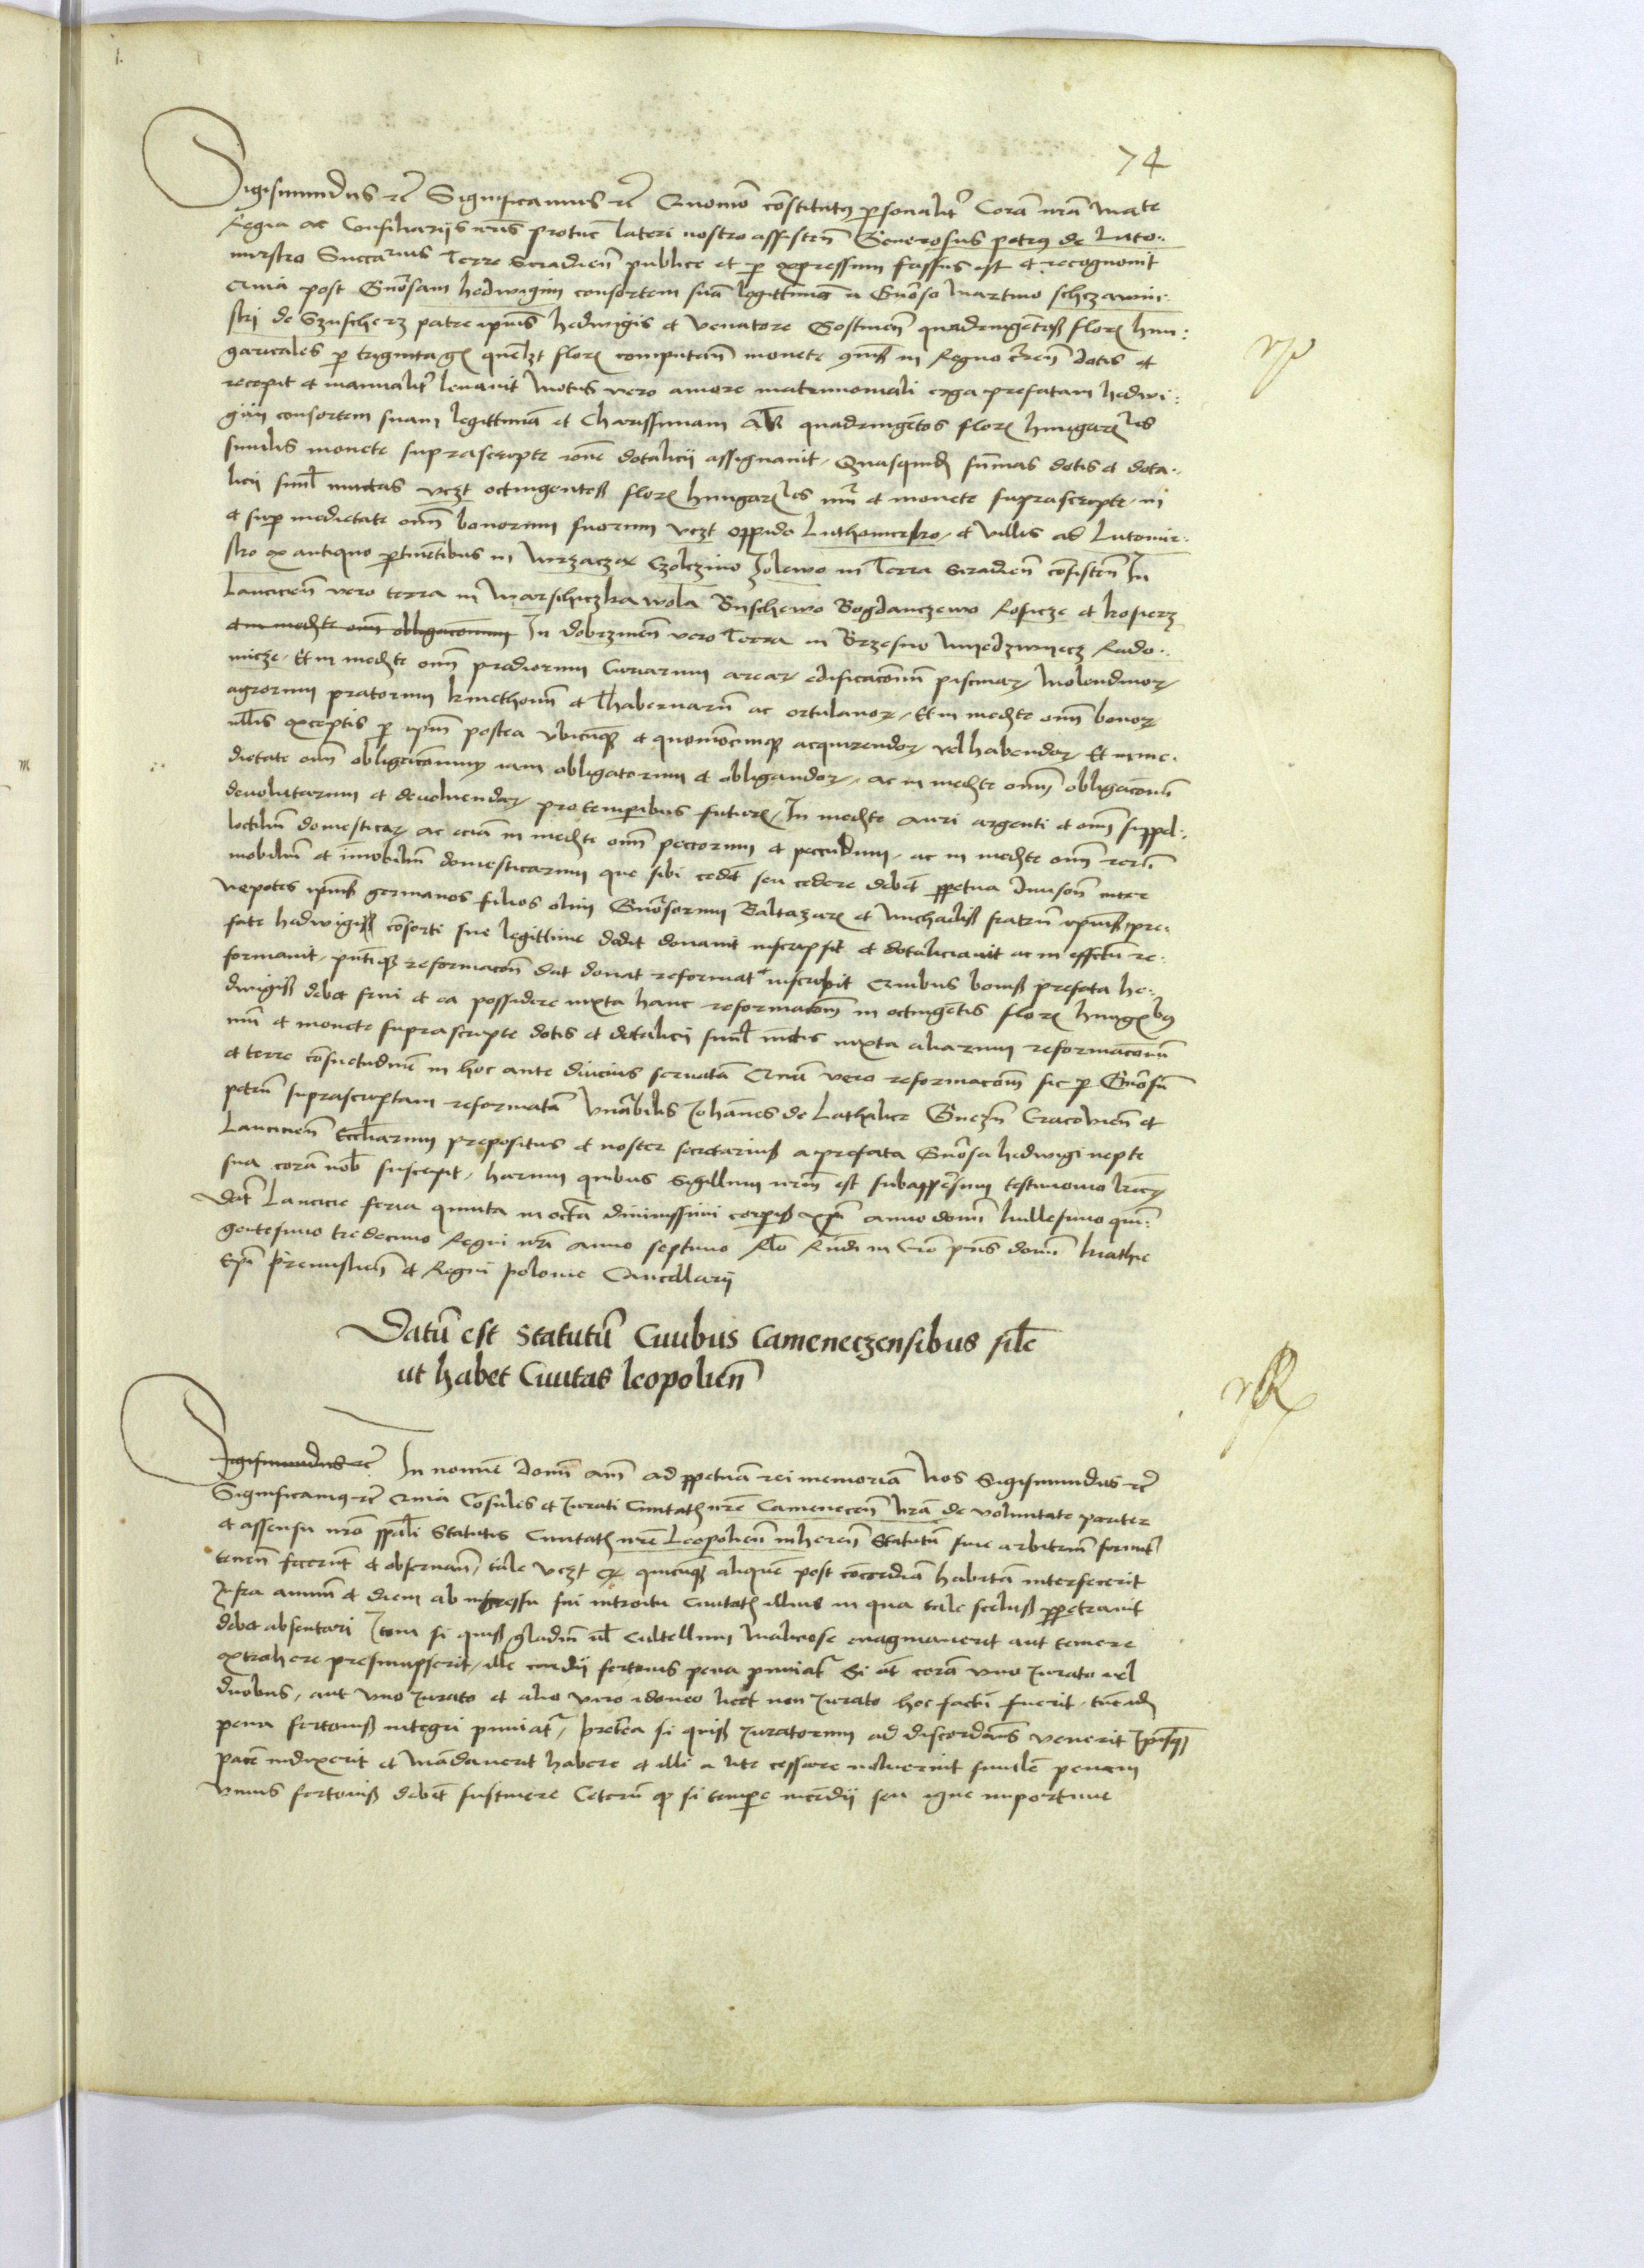 74
Sigismundus etc Significamus etc Quomo constitutus personalitr Coram nra Mate
Regia ac Consiliariis nris protunc lateri nostro assisten Generosus petrus de luto..
mirsko Succarius Terre Siradien publice et per expressum fassus est et recognovit
Quia post Gnosam hedwigim consortem sua legittima a Gnoso Martino schczawin.
ski de Szuscherz patre ipius hedwigis et Venatore Gostinen quadringetos floren hun:
garicales per triginta gr quelzt floren computan monete in Regno dotis et
recepit et manualitr levavit Motus vero amore matrimoniali erga prefatam hedwi:
gim consortem suam legittima et Charissimam quadringetos floren hungarles
similis monete suprascripte rone dotalicii assignavit, Quasquid summas dotis et dota..
licii siml iunctas vczt octingentos floren hungarles et monete suprascripte, in
et sup medietate omn bonorum suorum vczt oppido Luthomirsko, et Villis ad Lutomir.
sko ex antiquo ptinetibus in Mirzacze Czolczino Zolewo in Terra Siradien consisten In
Lancicien vero terra in Marschiczka wola Buschewo Bogdanczewo Rosicze et kosierz
et in medte omn obligaconum In dobrzinen vero Terra in Brzesno Rado..
micze, Et in medte omn prediorum Curiarum arear edificaconum piscinar Molendinor
agrorum pratorum kmethonu et Thabernaru ac ortulanor, Et in medte omn bonor
ullis exceptis per ipm postea ubicunque et quomocunque acquirendor vel habendor Et in me.
dietate omn obligaconum iam obligatorum et obligandor, ac in medte omn obligaconu
devolutarum et devolvendar pro temporibus futur, In medte auri argenti et omn suppel.
lectiliu domesticar ac ecia in medte omn peccorum et peccudum, ac in medte omn reru
mobiliu et imobiliu domesticarum que sibi cedet seu cedere debet perpetua divison inter
nepotes ipius germanos filios olim Gnosorum Baltazar et Michaelis fratru ipius, pre.
fate hedwigis consorti sue legittime dedit donavit inscripsit et dotaliciavit ac in effectu re.
formavit, reformacon dat donat reformat et inscribit Quibus bonis prefata he..
dwigis debet frui et ea possidere iuxta hanc reformacom in octingetis floren hungbus
et monete suprascripte dotis et dotalicii siml iuctis iuxta aliarum reformaconu
et terre consuetudine in hoc ante diucius servata Qua vero reformacom sic p Gnosu
petru suprascriptam reformata Vnabilis Johanes de Lathalice Gnezn Cracovien et
Lancicien Eccliarum prepositus et noster secretarius a prefata Gnosa hedwigi nepte
sua cora nob suscepit, harum quibus sigillum nrm est subappesum testimonio lrar
Dat Lancicie feria quinta in octa divinissimi corporis xpi anno domi Millesimo quin:
gentesimo tredecimo Regni nri anno septimo Rlo Rndi in Cro pris domi Mathie
Epi Premislien et Regni polonie Cancellarii
Datu est statutu Civibus Cameneczensibus sile
ut habet Civitas leopolien
Sigismundus etc In nomie Domi ame ad ppetua rei memoria Nos Sigismundus etc
Significamus etc Quia Consules et Jurati Civitatis nre Camenecen nra de voluntate pariter
et assensu nro spali Statutis Civitatis nre Leopolien inheren Statutu sive arbitriu
tenen fecerut et observan, tale vczt quicuque alique post concordia habita interfecerit
Infra annu et diem ab ingressu sui introitu Civitatis illius in qua tale scelus ppetravit
debet absentari Item si quis gladiu vl cultellum Maliciose evaginaverit aut temere
extrahere presumpserit, ille medii fertonis pena puniatr Si at cora uno Jurato vel
duobus, aut uno Jurato et alio viro idoneo licet non Jurato hoc factu fuerit, tuc
pena fertonis integri puniatr, preterea si quis Juratorum ad discordates venerit
pace indixerit et Madaverit habere et illi a lite cessare noluerint simile penam
unius fertonis debet sustinere Ceteru si tempore incendii seu igne importune